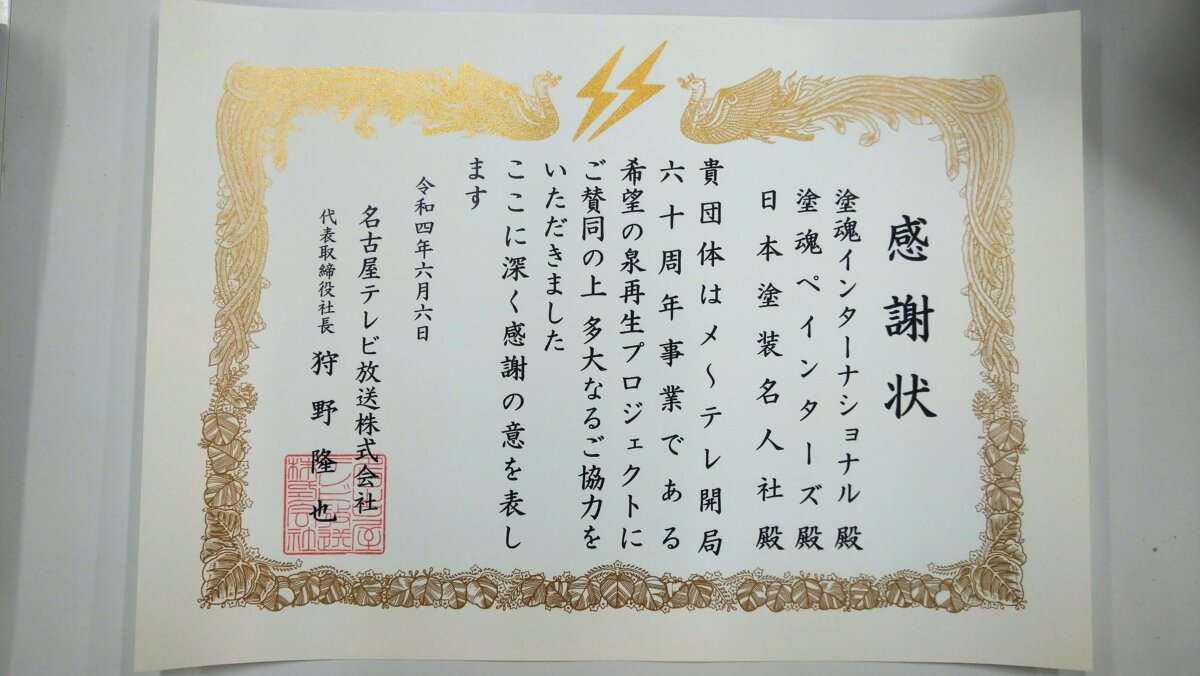 感謝状
塗魂インターナショナル殿
塗魂ペインターズ殿
日本塗装名人社殿
貴団体はメ～テレ開局
六十周年事業である
希望の泉再生プロジェクトに
ご賛同の上 多大なるご協力を
いただきました
ここに深く感謝の意を表し
ます
令和四年六月六日
名古屋テレビ放送株式会社
代表取締役社長 狩野隆也